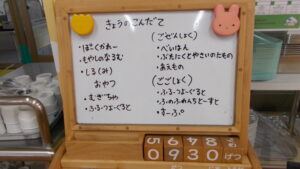 きょうのこんだて
・ぽーくかれー
・もやしのなるむ
・しる(み)
おやつ
・むぎちゃ
・ふるーつよーぐると
(ごぜんしょく)
・べいはん
・ぶたにくとやさいのたもの
・あえもの
(ごごしょく)
・ふるーつよーぐると
・ふのふれんちとーすと
・すーぷ
5 6 4 8 6
0 9 3 0 げつ